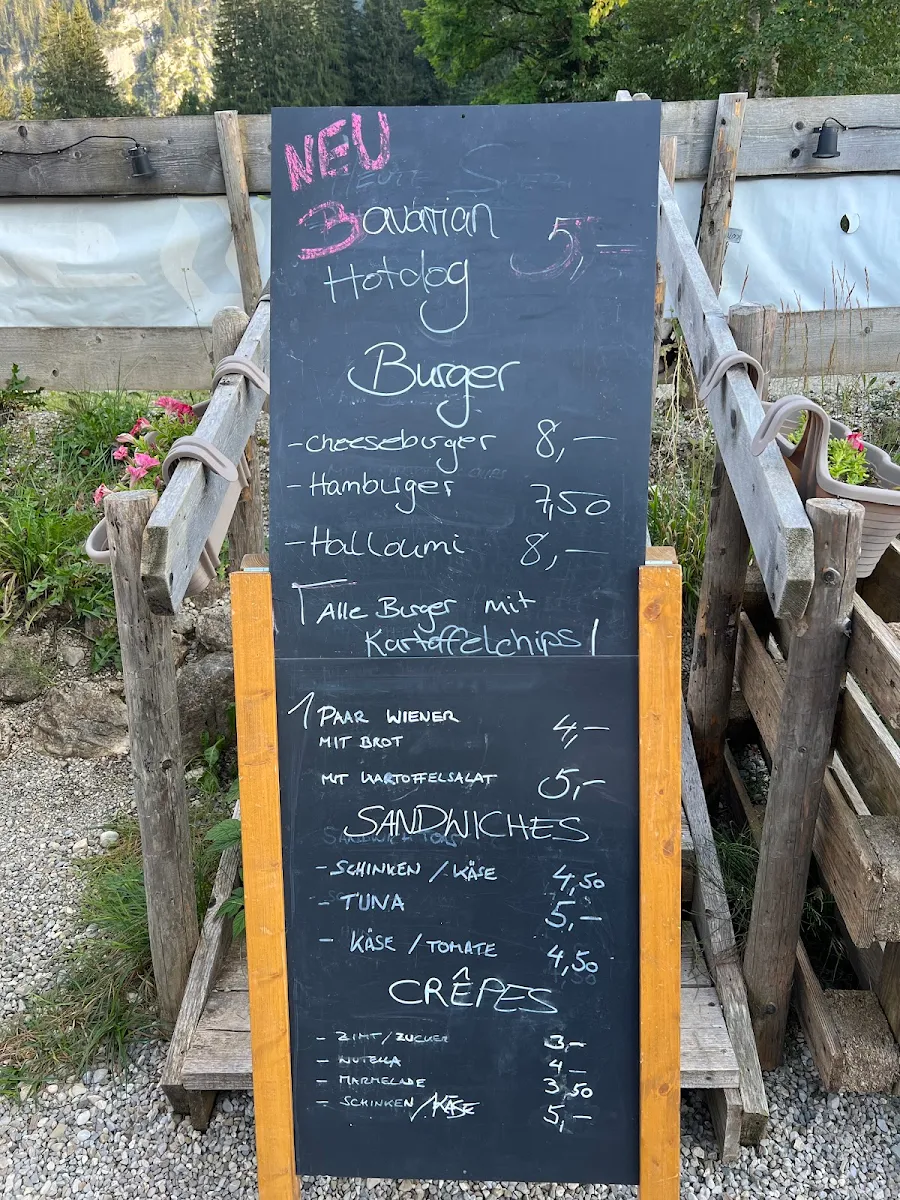 NEU
Bavarian 5,-
Hotdog
Burger
- Cheeseburger 8,-
- Hamburger 7,50
- Halloumi 8,-
Alle Burger mit
Kartoffelchips!
1 PAAR WIENER 4,-
MIT BROT
MIT KARTOFFELSALAT 5,-
SANDWICHES
- SCHINKEN / KÄSE 4,50
- TUNA 5,-
- KÄSE / TOMATE 4,50
CRÊPES
- ZIMT / ZUCKER 3,-
- NUTELLA 4-
- MARMELADE 3,50
- SCHINKEN / KÄSE 5,-